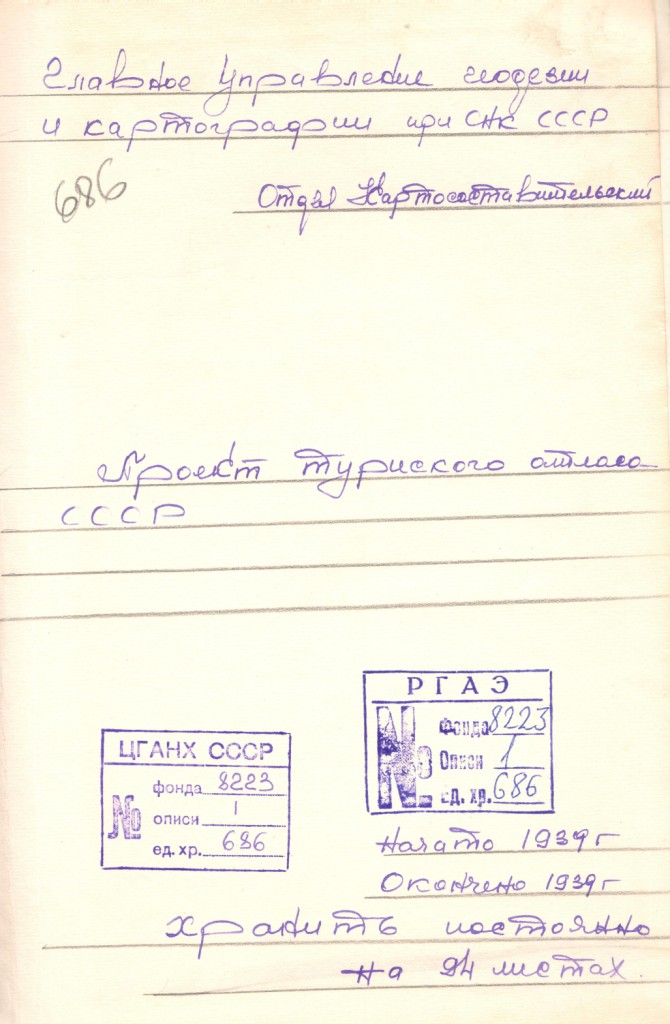 Главное Управление геодезии
и картографии при СНК СССР
686
Отдел Картосоставительский
Проект туриского атласа
СССР
РГАЭ
№
Фонда 8223
Описи 1
Ед. хр. 686
ЦГАНХ СССР
№
фонда 8223
описи 1
ед. хр. 686
Начато 1939 г
Окончено 1939 г
хранить постоянно
на 94 листах.